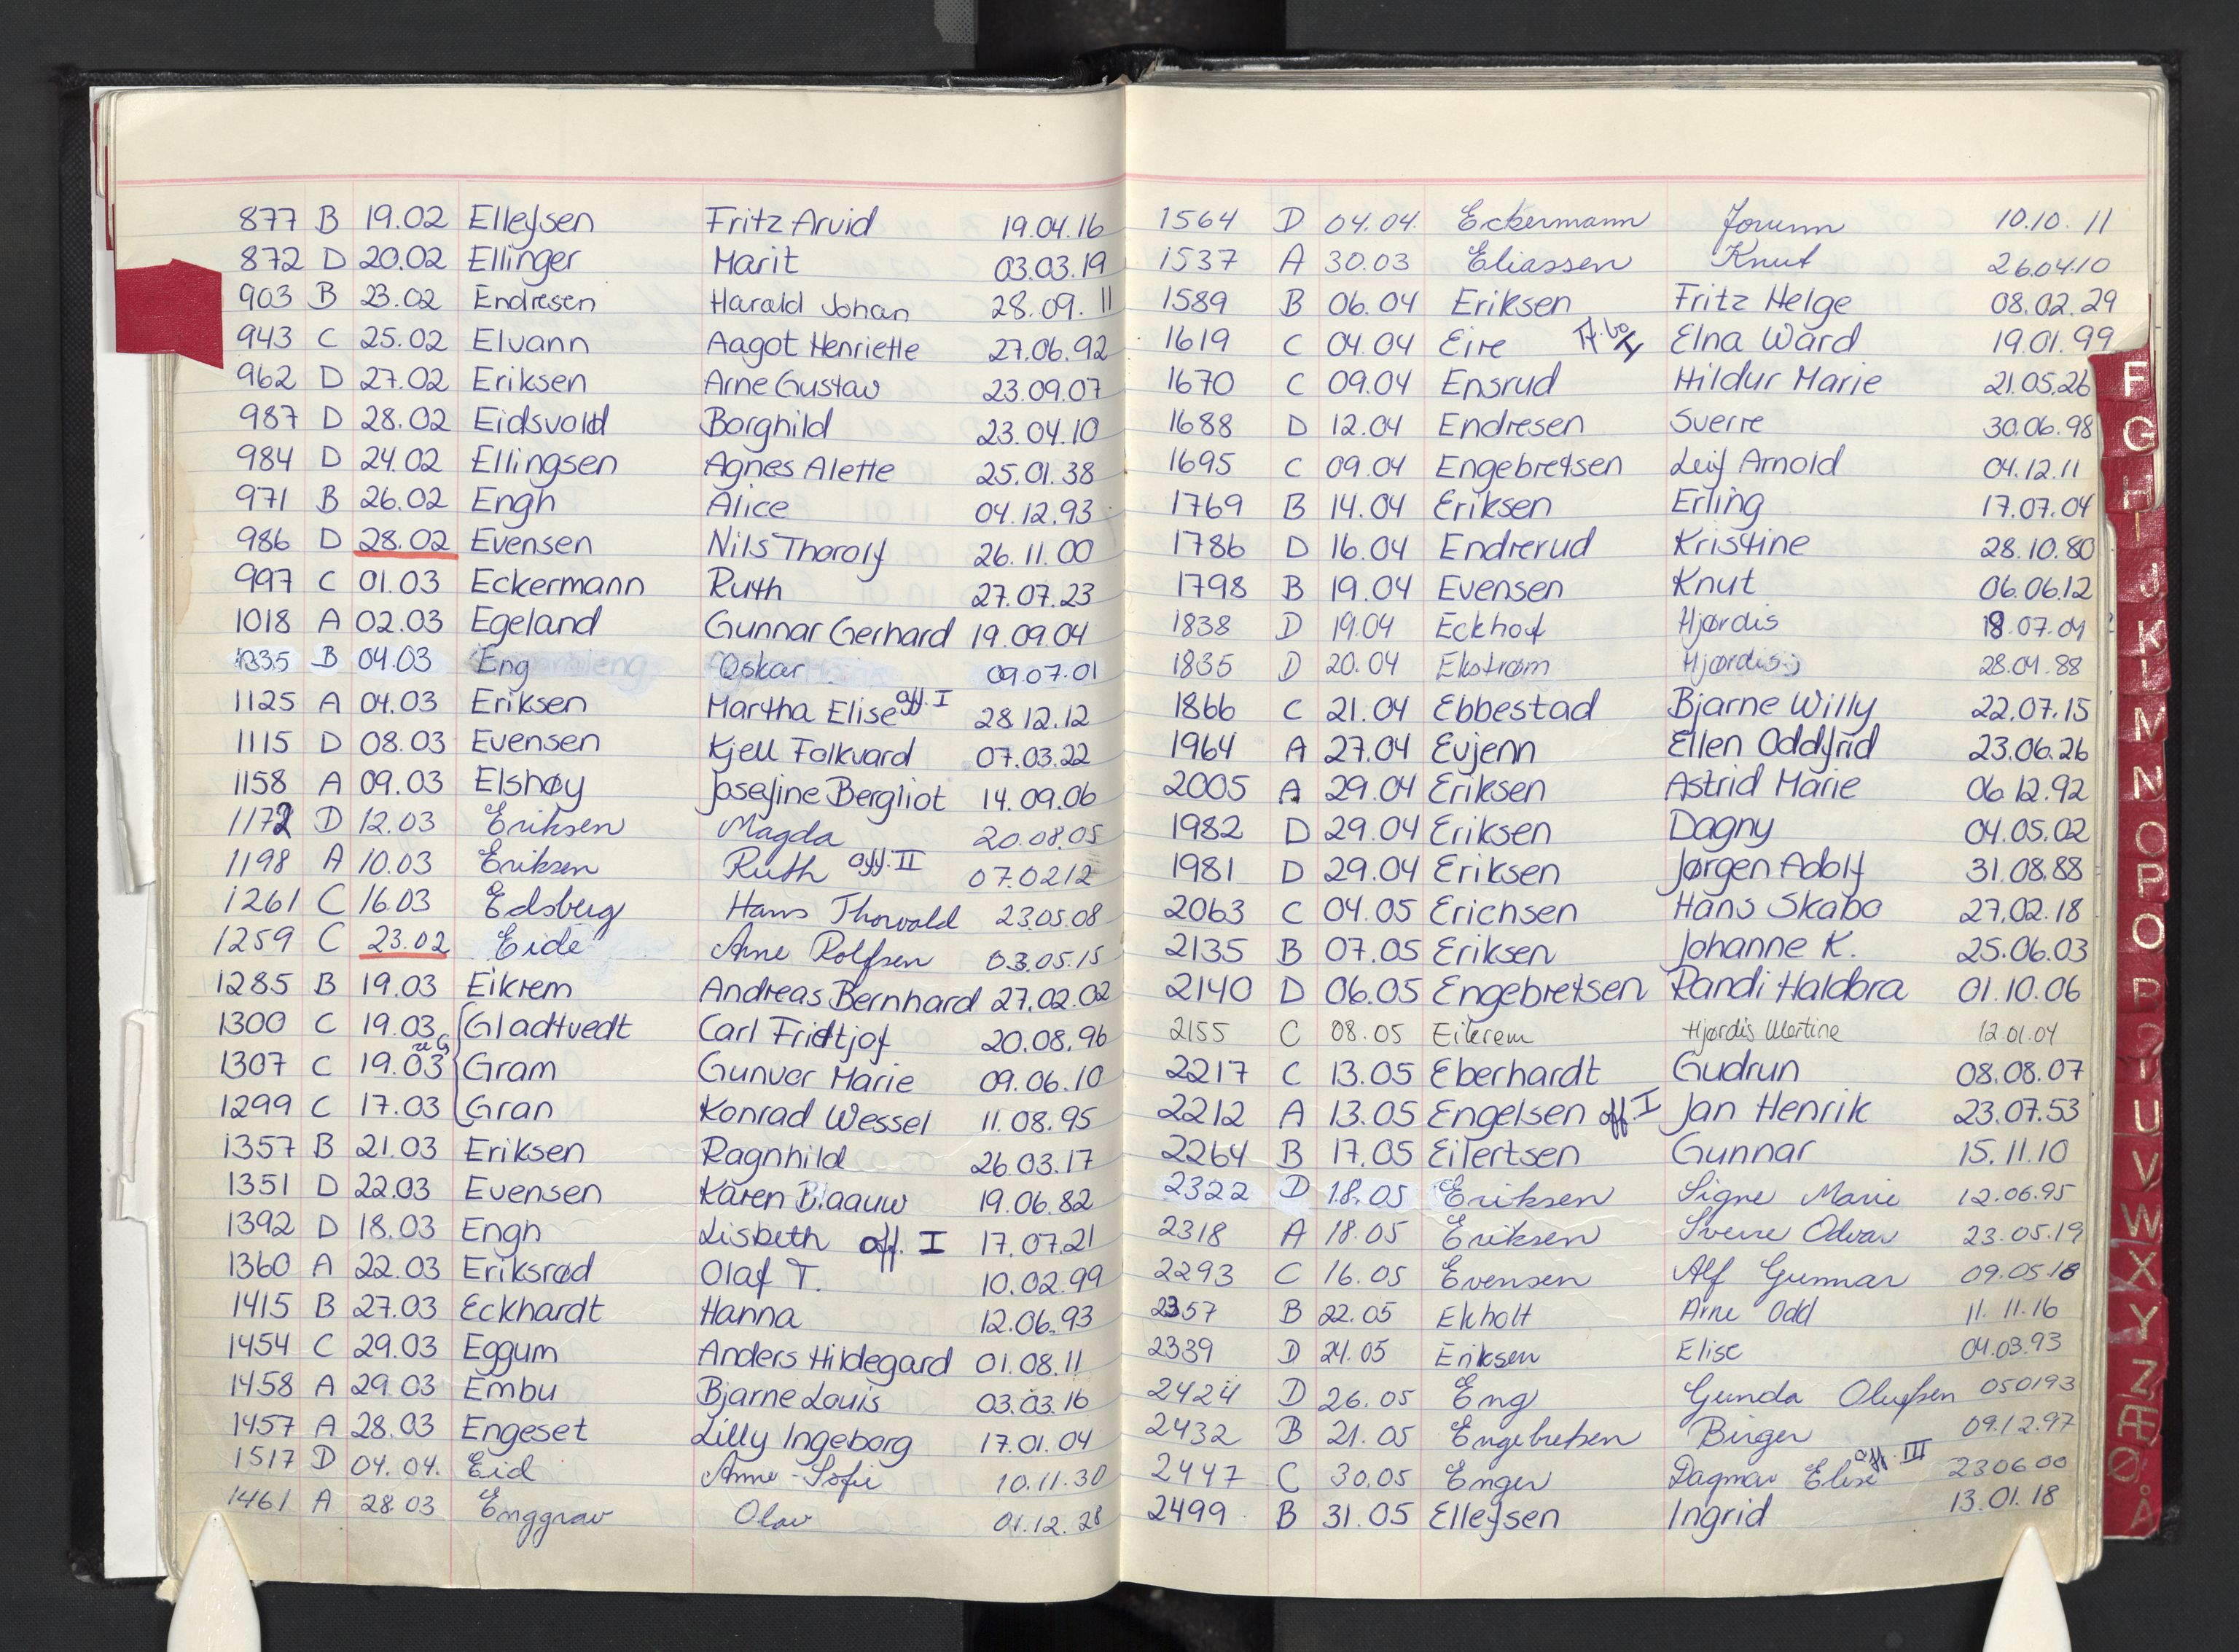 877 B 19.02 Ellefsen Fritz Arvid 19.04.16
872 D 20.02 Ellinger Marit 03.03.19
903 B 23.02 Endresen Harald Johan 28.09.11
943 C 25.02 Elvann Aagot Henriette 27.06.92
962 D 27.02 Eriksen Arne Gustav 23.09.07
987 D 28.02 Eidsvold Borghild 23.04.10
984 D 24.02 Ellingsen Agnes Alette 25.01.38
971 B 26.02 Engh Alice 04.12.93
986 D 28.02 Evensen Nils Thorolf 26.11.00
997 C 01.03 Eckermann Ruth 27.07.23
1018 A 02.03 Egeland Gunnar Gerhard 19.09.04
1035 B 04.03 Eng Oskar 09.07.01
1125 A 04.03 Eriksen Martha Elise aff. I 28.12.12
1115 D 08.03 Evensen Kjell Folkvard 07.03.22
1158 A 09.03 Elshøy Josefine Bergliot 14.09.06
1172 D 12.03 Eriksen Magda 20.08.05
1198 A 10.03 Eriksen Ruth aff. II 07.0212
1261 C 16.03 Edsberg Hans Thorvald 23.05.08
1259 C 23.02 Eide Arne Rolfsen 03.05.15
1285 B 19.03 Eikrem Andreas Bernhard 27.02.02
1300 C 19.03 Gladtvedt Carl Fridtjof 20.08.96
1307 C 19.03 Gram Gunvor Marie 09.06.10
1299 C 17.03 Gran Konrad Wessel 11.08.95
1357 B 21.03 Eriksen Ragnhild 26.03.17
1351 D 22.03 Evensen Karen Blaauw 19.06.82
1392 D 18.03 Engh Lisbeth aff. I 17.07.21
1360 A 22.03 Eriksrød Olaf T. 10.02.99
1415 B 27.03 Eckhardt Hanna 12.06.93
1454 C 29.03 Eggum Anders Hildegard 01.08.11
1458 A 29.03 Embu Bjarne Louis 03.03.16
1457 A 28.03 Engeset Lilly Ingeborg 17.01.04
1517 D 04.04. Eid Anne-Sofie 10.11.30
1461 A 28.03 Enggrav Olav 01.12.28
1564 D 04.04. Eckermann Jorunn 10.10.11
1537 A 30.03 Eliassen Knut 26.04.10
1589 B 06.04 Eriksen Fritz Helge 08.02.29
1619 C 04.04 Eire Elna Ward 19.01.99
1670 C 09.04 Ensrud Hildur Marie 21.05.26
1688 D 12.04 Endresen Sverre 30.06.98
1695 C 09.04 Engebretsen Leif Arnold 04.12.11
1769 B 14.04 Eriksen Erling 17.07.04
1786 D 16.04 Endrerud Kristine 28.10.80
1798 B 19.04 Evensen Knut 06.06.12
1838 D 19.04 Eckhof Hjørdis 18.07.04
1835 D 20.04 Ekstrøm Hjørdis 28.04.88
1866 C 21.04 Ebbestad Bjarne Willy 22.07.15
1964 A 27.04 Evjenn Ellen Oddfrid 23.06.26
2005 A 29.04 Eriksen Astrid Marie 06.12.92
1982 D 29.04 Eriksen Dagny 04.05.02
1981 D 29.04 Eriksen Jørgen Adolf 31.08.88
2063 C 04.05 Erichsen Hans Skabo 27.02.18
2135 B 07.05 Eriksen Johanne K. 25.06.03
2140 D 06.05 Engebretsen Randi Haldora 01.10.06
2155 C 08.05 Eikrem Hjørdis Martine 12.01.04
2217 C 13.05 Eberhardt Gudrun 08.08.07
2212 A 13.05 Engelsen aff. I Jan Henrik 23.07.53
2264 B 17.05 Eilertsen Gunnar 15.11.10
2322 D 18.05 Eriksen Signe Marie 12.06.95
2318 A 18.05 Eriksen Sverre Odvar 23.05.19
2293 C 16.05 Evensen Alf Gunnar 09.05.18
2357 B 22.05 Ekholt Arne Odd 11.11.16
2339 D 24.05 Eriksen Elise 04.03.93
2424 D 26.05 Eng Gunda Olufsen 050193
2432 B 21.05 Engebretsen Birger 09.12.97
2447 C 30.05 Enger Dagmar Elise aff. III 230600
2499 B 31.05 Ellefsen Ingrid 13.01.18
F
G
H
I
J
K
L
M
N
O
P
Q
R
U
V
W
X
Y
Z
Æ
Ø
Å